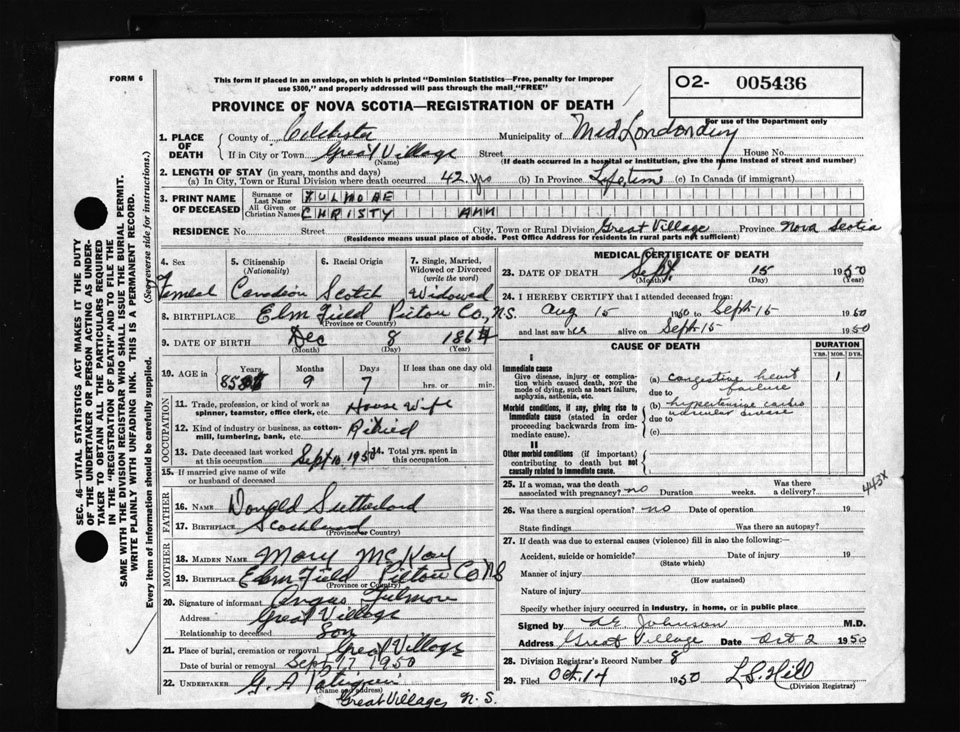 FORM 6
This form if placed in an envelope, on which is printed "Dominion Statistics—Free, penalty for improper
use $300," and properly addressed will pass through the mail "FREE"
O2- 005436
For use of the Department only
PROVINCE OF NOVA SCOTIA—REGISTRATION OF DEATH
1. PLACE OF DEATH
County of Colchester Municipality of
If in City or Town Great Village Street House No.
(Name) (If death occurred in a hospital or institution, give the name instead of street and number)
2. LENGTH OF STAY (in years, months and days)
(a) In City, Town or Rural Division where death occurred 42 yrs (b) In Province (c) In Canada (if immigrant)
3. PRINT NAME OF DECEASED
Surname or Last Name FULMORE
All Given or Christian Names CHRISTY ANN
RESIDENCE No. Street City, Town or Rural Division Great Village Province Nova Scotia
(Residence means usual place of abode. Post Office Address for residents in rural parts not sufficient)
4. Sex
5. Citizenship (Nationality)
6. Racial Origin
7. Single, Married, Widowed or Divorced (write the word)
Scotch Widowed
8. BIRTHPLACE Elm Field Pictou Co, N.S.
(Province or Country)
9. DATE OF BIRTH Dec 8 1864
(Month) (Day) (Year)
10. AGE in Years Months Days If less than one day old
85 9 7 hrs. or min.
OCCUPATION
11. Trade, profession, or kind of work as spinner, teamster, office clerk, etc. House Wife
12. Kind of industry or business, as cotton-mill, lumbering, bank, etc.
13. Date deceased last worked at this occupation Sept 10 1950
14. Total yrs. spent in this occupation
15. If married give name of wife or husband of deceased
FATHER
16. Name Donald Sutherland
17. Birthplace
(Province or Country)
MOTHER
18. MAIDEN NAME Mary McKay
19. BIRTHPLACE Elm Field Pictou Co NS
(Province or Country)
20. Signature of informant Angus Fulmore
Address Great Village
Relationship to deceased Son
21. Place of burial, cremation or removal Great Village
Date of burial or removal Sept 17 1950
22. UNDERTAKER G. A
(Name and address)
Great Village, N.S.
MEDICAL CERTIFICATE OF DEATH
23. DATE OF DEATH Sept. 15 1950
(Month) (Day) (Year)
24. I HEREBY CERTIFY that I attended deceased from:
Aug 15 1950 to Sept-15 1950
and last saw her alive on Sept-15 1950
CAUSE OF DEATH
DURATION
YRS. MOS. DYS.
I
Immediate cause
Give disease, injury or complication which caused death, NOT the mode of dying, such as heart failure, asphyxia, asthenia, etc.
(a) congestive heart failure 1
due to
Morbid conditions, if any, giving rise to immediate cause (stated in order proceeding backwards from immediate cause).
(b) hypertensive cardio vascular disease
due to
(c)
II
Other morbid conditions (if important) contributing to death but not causally related to immediate cause.
25. If a woman, was the death associated with pregnancy? no Duration weeks. Was there a delivery?
443X
26. Was there a surgical operation? no Date of operation 19
State findings Was there an autopsy?
27. If death was due to external causes (violence) fill in also the following:—
Accident, suicide or homicide? Date of injury 19
(State which)
Manner of injury
(How sustained)
Nature of injury
Specify whether injury occurred in industry, in home, or in public place
Signed by Johnson M.D.
Address Great Village Date Oct 2 1950
28. Division Registrar's Record Number 8
29. Filed Oct. 14 1950 L S. Hill
(Division Registrar)
SEC. 46—VITAL STATISTICS ACT MAKES IT THE DUTY
OF THE UNDERTAKER OR PERSON ACTING AS UNDER-
TAKER TO OBTAIN ALL THE PARTICULARS REQUIRED
IN THE "REGISTRATION OF DEATH" AND TO FILE THE
SAME WITH THE DIVISION REGISTRAR WHO SHALL ISSUE THE BURIAL PERMIT.
WRITE PLAINLY WITH UNFADING INK. THIS IS A PERMANENT RECORD.
Every item of information should be carefully supplied. (See reverse side for instructions.)